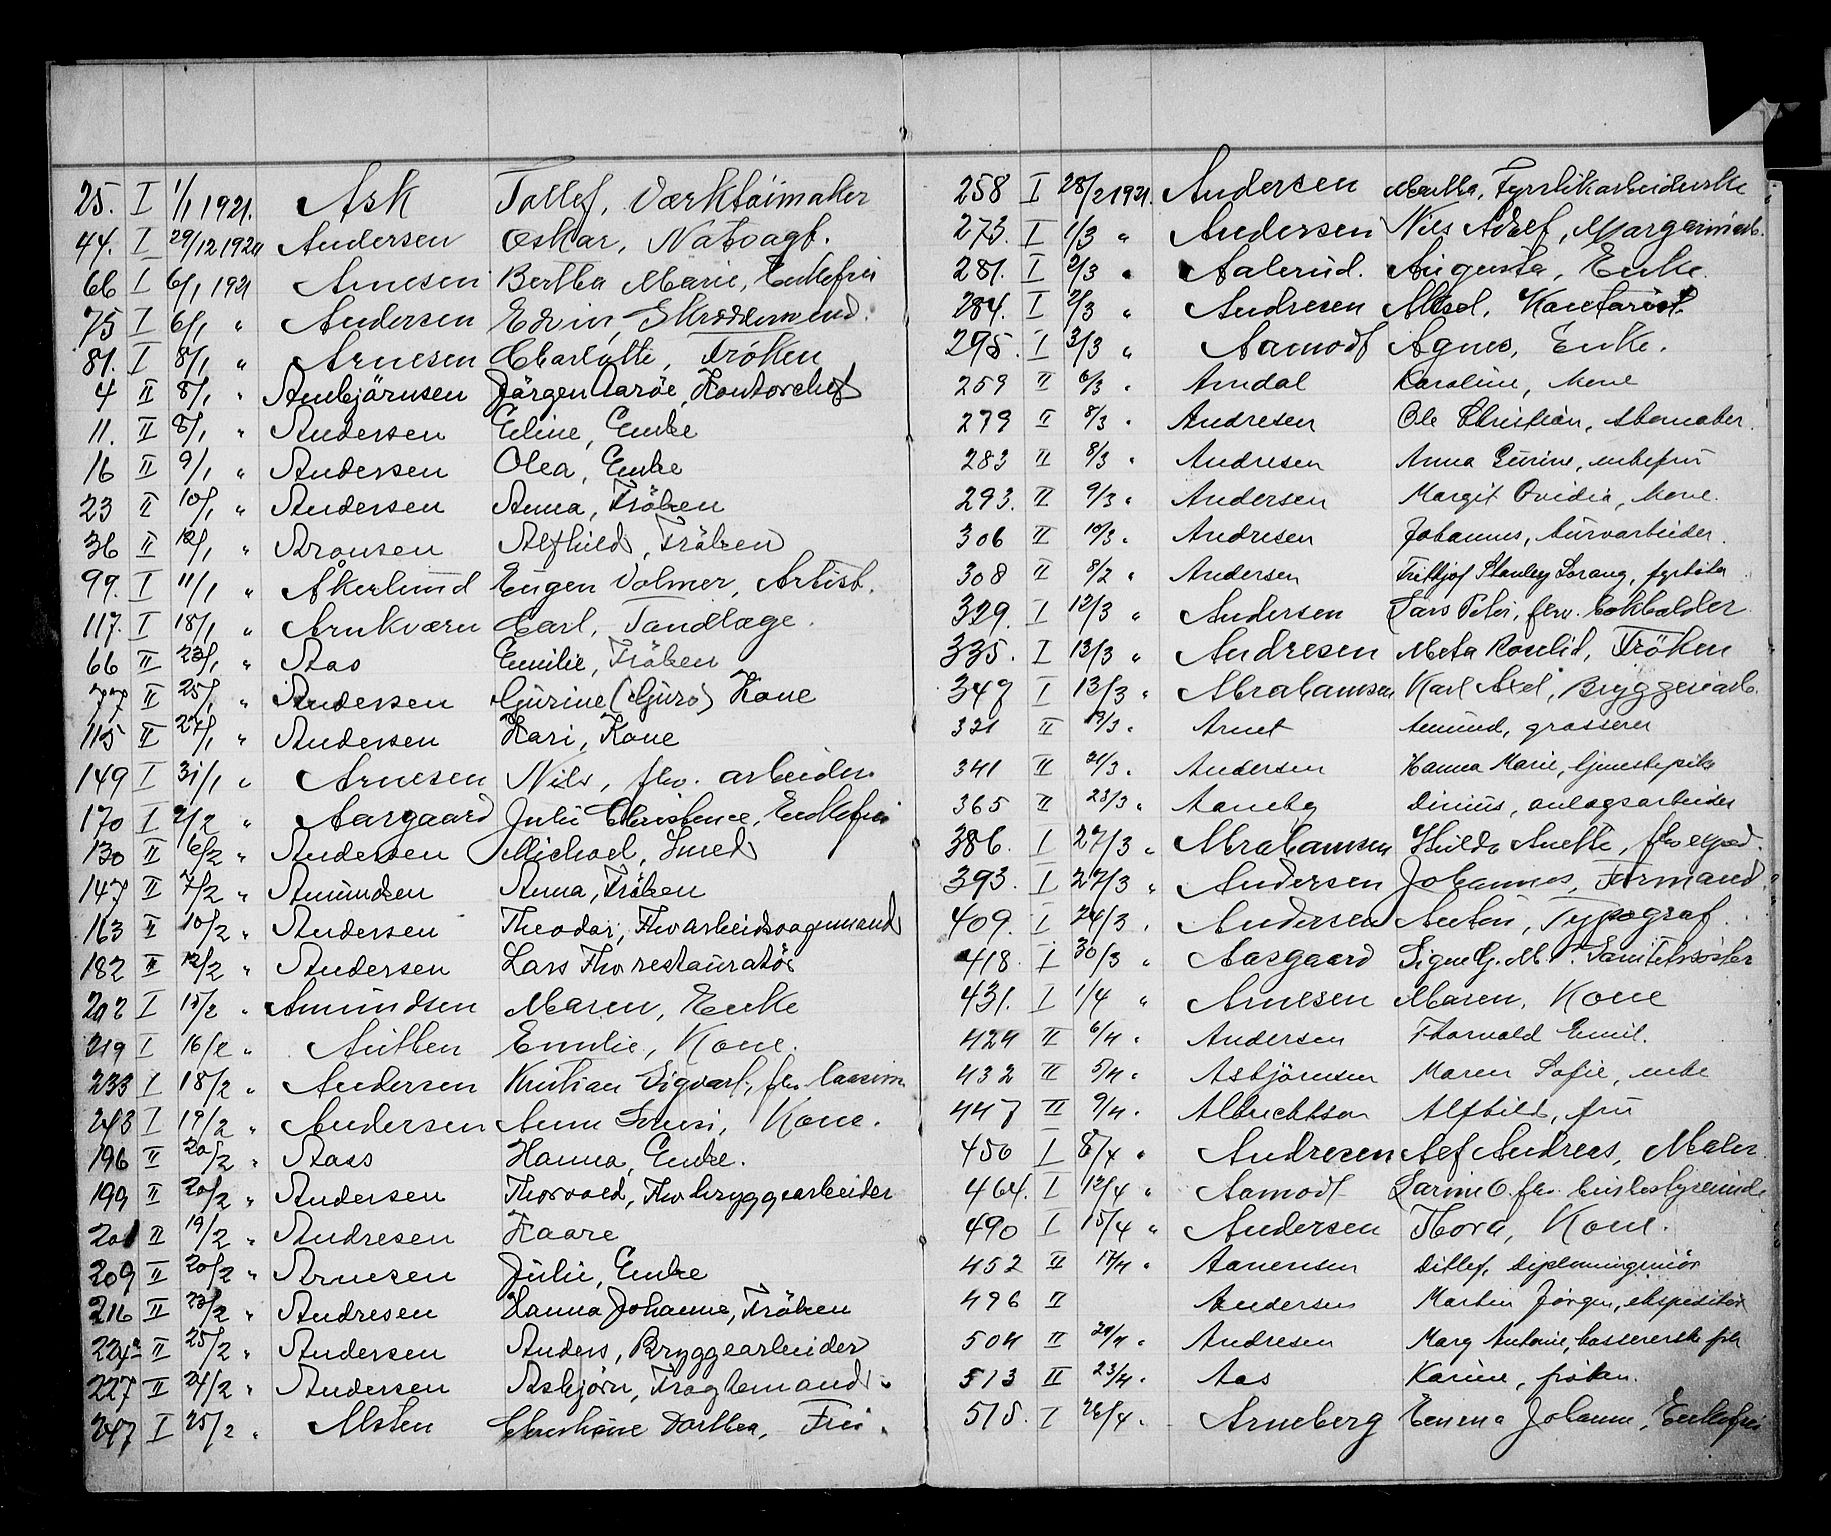 25. I 1/1 1921. Ask Tollef, Værktöimaker
44. I 29/12 1920 Andersen Oskar, Natvagt.
66 I 6/1 1921 Arnesen Bertha Marie, Enkefru
75 I 6/1 " Andersen Edvin, Skræddersvend.
81. I 8/1 " Arnesen Charlotte, Fröken
4 II 8/1 " Annbjörnsen Jörgen Aaröe, Kontorchef
11. II 8/1 " Andersen Eline, Enke
16 II 9/1 " Andersen Olea, Enke
23 II 10/1 " Andersen Anna, Fröken
36 II 12/1 " Aronsen Alfhild, Fröken
99. I 11/1 " Åkerlund Eugen Volmer, Artist.
117. I 18/1 " Arnkværn Carl, Tandlæge.
66 II 23/1 " Aas Emilie, Fröken
77 II 25/1 " Andersen Gurine (Guro) Kone
115 II 27/1 " Andersen Kari, Kone
149 I 31/1 " Arnesen Nils, fhv. arbeider.
170 I 2/2 " Aargaard Julie Christence, Enkefru
130 II 6/2 " Andersen Michael, Smed
147 II 7/2 " Amundsen Anna, Fröken
163 II 10/2 " Andersen Theodor, Fhv arbeidsvognmand
182 II 12/2 " Andersen Lars Fhv restauratör
202 I 15/2 " Amundsen Maren, Enke
219 I 16/2 " Anthen Emilie, Kone.
233 I 18/2 " Andersen Kristian Sigvart, fhv.
243 I 19/2 " Andersen Anna Lovise, Kone.
196 II 20/2 " Aass Hanna, Enke.
199 II 20/2 " Andersen Thorvald, Fhv bryggearbeider
201 II 19/2 " Andresen Kaare
209 II 20/2 " Arnesen Julie, Enke
216 II 23/2 " Andresen Hanna Johanne, Fröken
224a II 25/2 " Andersen Anders, Bryggearbeider
227 II 24/2 " Andersen Asbjörn, Fragtemand
247 I 25/2 " Alsten Christiane Dorthea, Fru.
258 I 28/2 1921. Andersen Martha, Fyrstikarbeiderske
273. I 1/3 " Andersen Nils Adolf, Margarinarb.
281. I 2/3 " Aalerud. Augusta, Enke.
284. I 2/3 " Andresen Aksel, Kontorist.
295. I 3/3 " Aamodt Agnes, Enke.
259 II 6/3 " Arndal Karoline, kone
279 II 8/3 " Andresen Ole Christian, skomaker.
283 II 8/3 " Andresen Anna Gurine, enkefru
293. II 9/3 " Andersen Margit Ovidia, kone.
306 II 10/3 " Andresen Johannes, kurvarbeider.
308 II 8/2 " Andersen Fritjof Stanley Sorang, fyrböter
329. I 12/3 " Andersen Lars Peter, fhv. bokholder
335. I 13/3 " Andresen Meta Roselid, Fröken
347 I 13/3 " Abrahamsen Karl Axel, Bryggeriarb.
321 II 19/3 " Arnet Amund, grosserer
341 II 21/3 " Andersen Hanna Marie, tjenestepike
365 II 23/3 " Aaneby Dinius, anlægsarbeider
386. I 27/3 " Abrahamsen Hilda Anette, fhv exped.
393. I 27/3 " Andersen Johannes, Formand
409. I 24/3 " Andersen Anton, Typograf.
418. I 30/3 " Aasgaard Signe G. M. Sanitetssöster
431. I 1/4 " Arnesen Maren, Kone
424 II 6/4 " Andersen Thorvald Emil.
432 II 5/4 " Asbjörnsen Maren Sofie, enke
447 II 9/4 " Albrechtson Alfhild, fru
450 I 8/4 " Andresen Alf Andreas, Maler
464. I 12/4 " Aamodt Larine O. fhv. husbestyrerinde
490 I 15/4 " Andersen Thora, Kone.
452 II 17/4 " Aanensen Ditlef, diplomingeniör
496 II Andersen Martin Jörgen, ekspeditör
504 II 20/4 " Andresen Mary Antonie, kassererske frk
513 II 23/4 " Aas Karine, fröken.
515. I 26/4 " Arneberg Emma Johanne, Enkefru